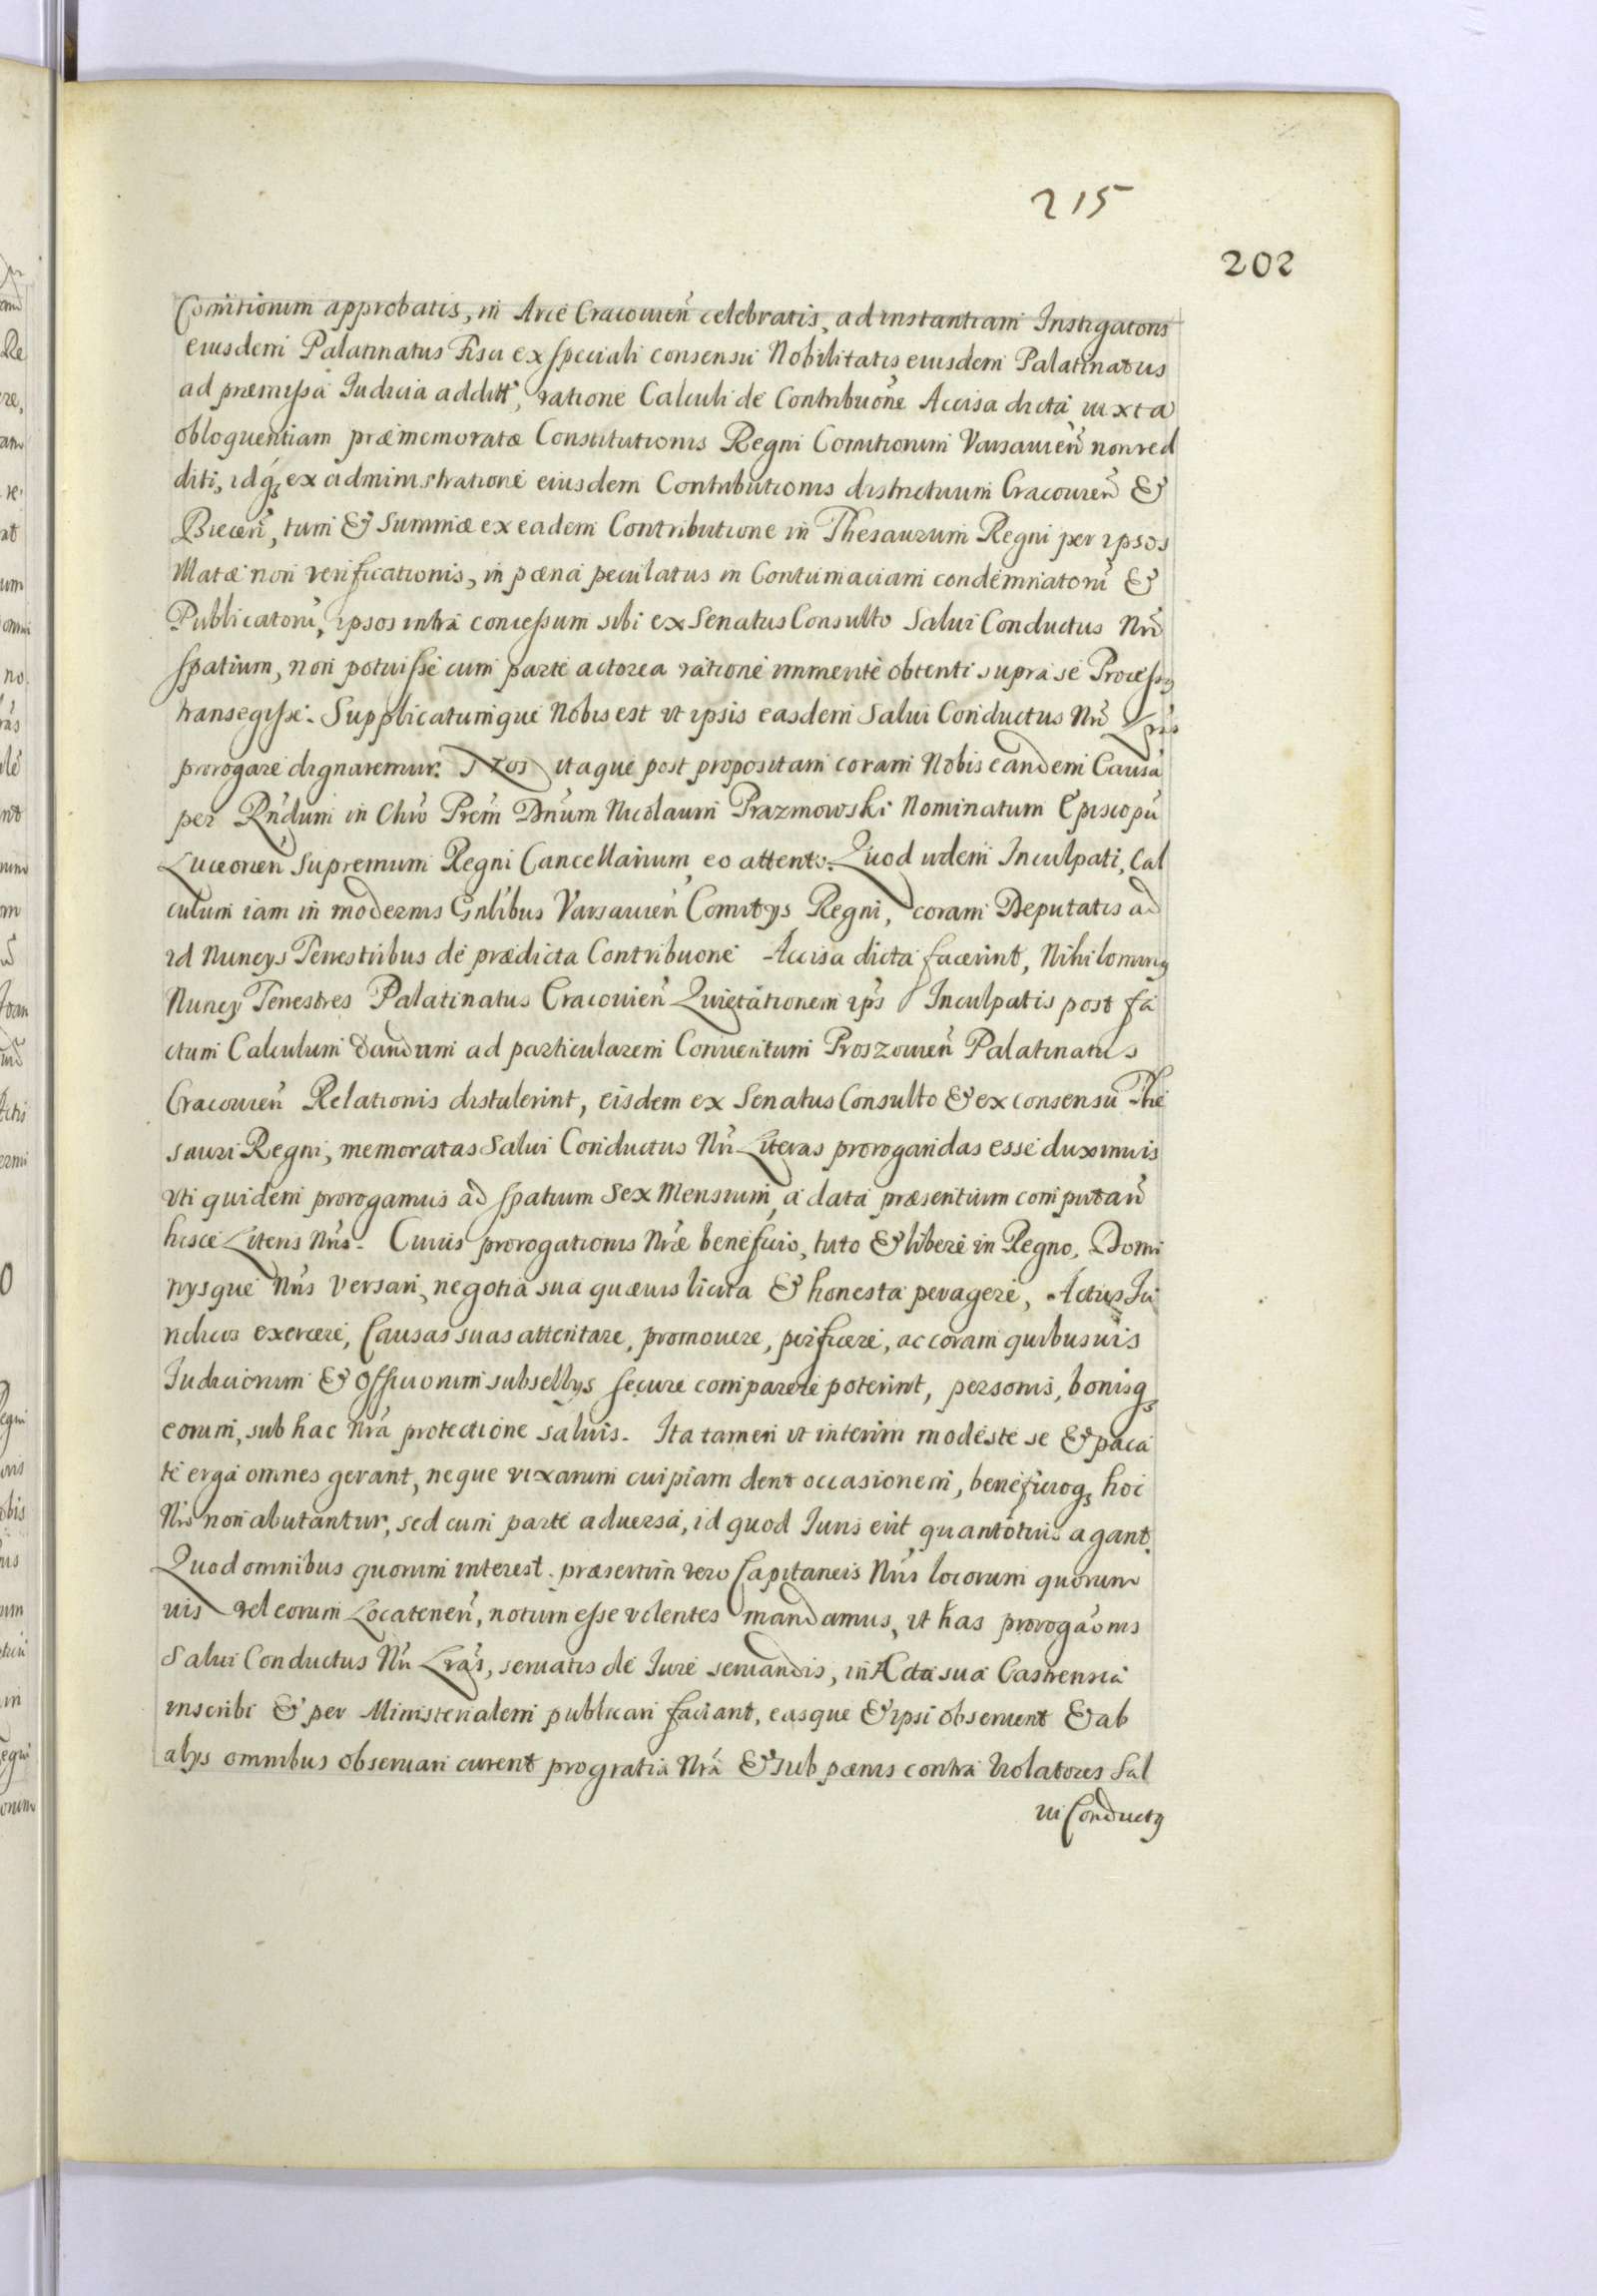 215
202
Comitiorum approbatis, in Arce Cracouien̄ celebratis, ad instantiam Instigatoris
eiusdem Palatinatus Fisci ex speciali consensu Nobilitatis eiusdem Palatinatus
ad præmissa Iudicia additi, ratione Calculi de Contribuōne Accisa dicta iuxta
obloquentiam præmemoratæ Constitutionis Regni Comitiorum Varsauien̄ non red
diti, idq́ꝫ ex administratione eiusdem Contributionis districtuum Cracouien̄ &
Biecen̄, tum & Summæ ex eadem Contributione in Thesaurum Regni per ipsos
illatæ non verificationis, in pœna peculatus in Contumaciam condemnatorū &
Publicatorū, ipsos intra concessum sibi ex Senatus Consulto Salui Conductus Nr̄i
spatium, non potuisse cum parte actorea ratione immerite obtenti supra se Processꝰ
transegisse. Supplicatumque Nobis est vt ipsis easdem Salui Conductus Nr̄i Lr̄as
prorogare dignaremur. Nos itaque post propositam coram Nobis eandem Causā
per Rn̄dum in Chrō Prēm Dn̄um Nicolaum Prazmowski Nominatum Episcopū
Luceorien̄ Supremum Regni Cancellarium, eo attento. Quod iidem Inculpati, Cal
culum iam in modernis Gn̄libus Varsauien̄ Comitijs Regni, coram Deputatis ad
id Nuncijs Terrestribus de prædicta Contribuone Accisa dicta facerint, Nihilominꝰ
Nuncij Terrestres Palatinatus Cracouien̄ Quietationem ip̄s Inculpatis post fa
ctum Calculum dandam ad particularem Conuentum Proszouien̄ Palatinatus
Cracouien̄ Relationis distulerint, eisdem ex Senatus Consulto & ex consensu The
sauri Regni, memoratas Salui Conductus Nr̄i Literas prorogandas esse duximus
vti quidem prorogamus ad spatium Sex Mensium, a data præsentium computan̄
hisce Literis Nr̄is. Cuius prorogationis Nr̄æ beneficio, tuto & libere in Regno, Domi
nijsque Nr̄is versari, negotia sua quæuis licita & honesta peragere, Actus Iu
ridicos exercere, Causas suas attentare, promouere, perficere, ac coram quibusuis
Iudiciorum & Officiorum subsellijs secure comparere poterint, personis, bonisqꝫ
eorum, sub hac Nr̄a protectione saluis. Ita tamen vt interim modeste se & paca
te erga omnes gerant, neque rixarum cuipiam dent occasionem, beneficioqꝫ hoc
Nr̄o non abutantur, sed cum parte aduersa, id quod Iuris erit quantotius agant.
Quod omnibus quorum interest. præsertim vero Capitaneis Nr̄is locorum quorum
uis vel eorum Locatenen̄, notum esse volentes mandamus, vt has prorogaōnis
Salui Conductus Nr̄i Lr̄as, seruatis de Iure seruandis, in Acta sua Castrensia
inscribi & per Ministerialem publicari faciant, easque & ipsi obseruent & ab
alijs omnibus obseruari curent pro gratia Nr̄a & sub pœnis contra Violatores Sal
ui Conductꝰ